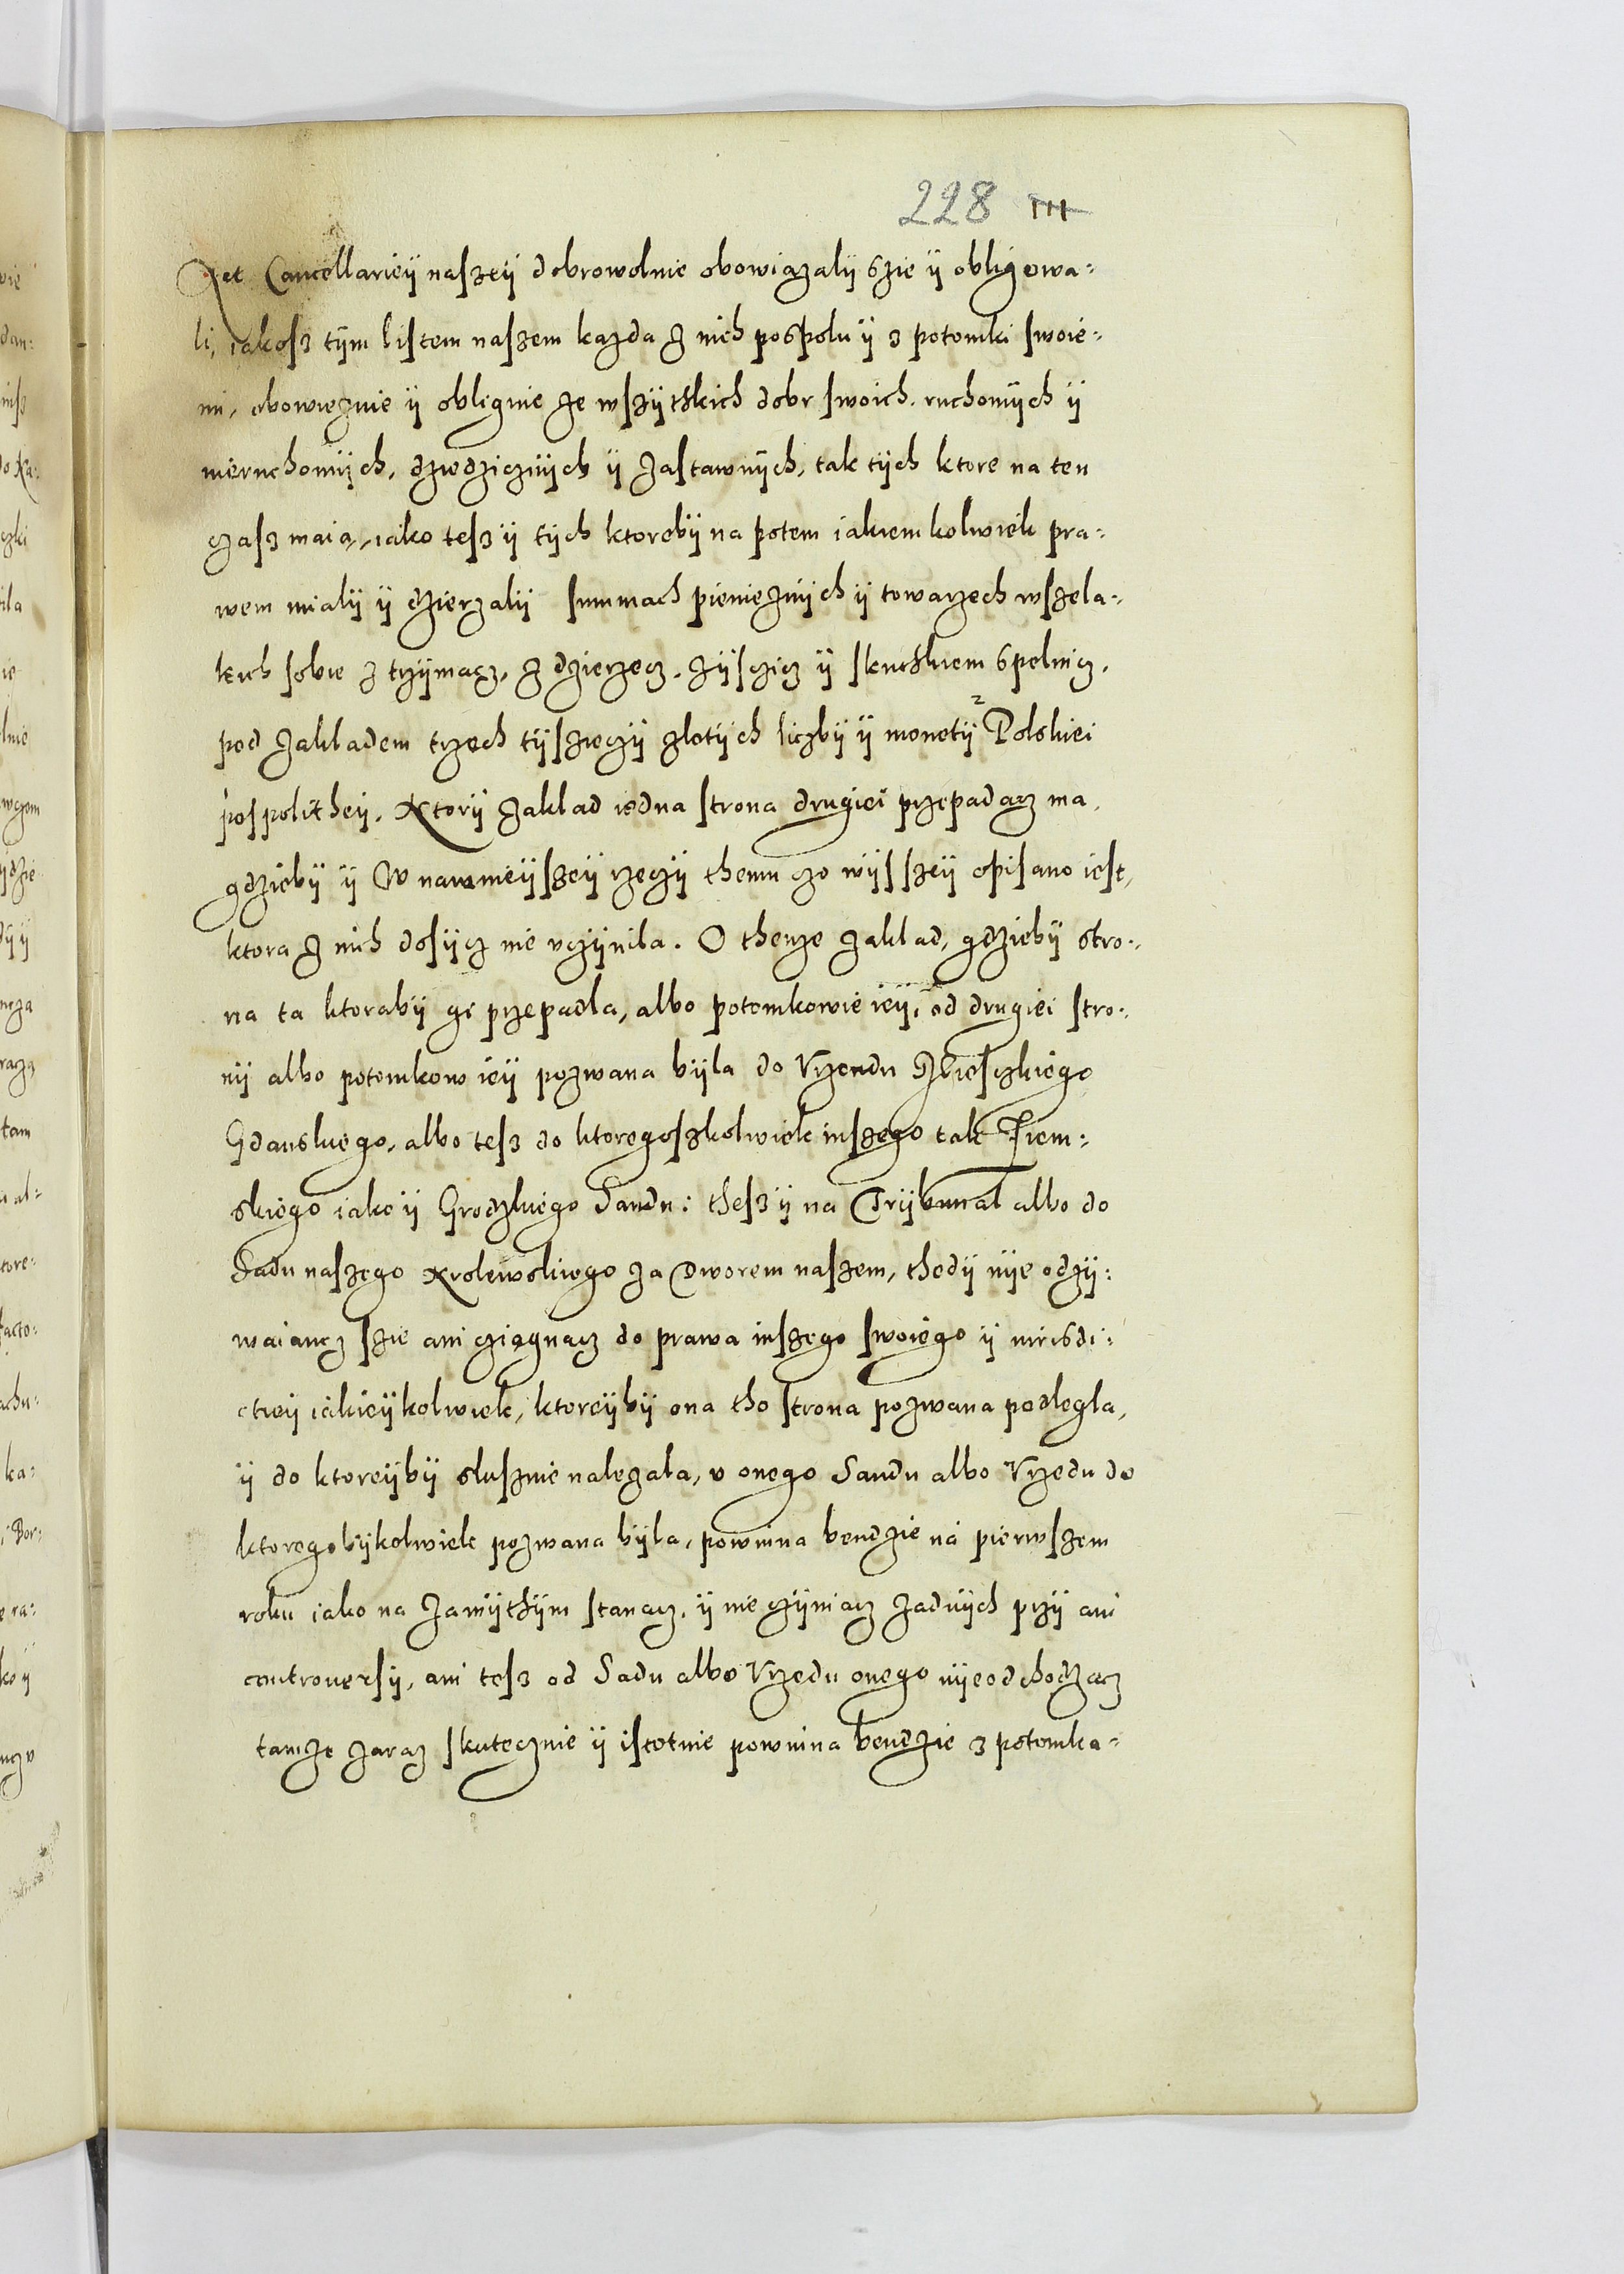 228
Act Cancellarieÿ naszeÿ dobrowolnie obowiązalÿ szie ÿ obligowa-
li, iakosz tÿm listem naszem kazda z nich pospolu ÿ z potomki swoie-
mi, obowięznie ÿ obliguie ze wszÿtkich dobr swoich, ruchomÿch ÿ
nieruchomÿch, dziedzicznÿch ÿ zastawnÿch, tak tÿch ktore na ten
czasz maią, iako tesz ÿ tÿch ktorebÿ na potem iakiemkolwiek pra-
wem mialÿ ÿ dzierzalÿ summach pienieznÿch ÿ towarzech wszela-
kich sobie ztrzÿmacz, zdzierzecz, zÿsczicz ÿ skutkiem spelnicz,
pod zakladem trzech tÿszięczÿ zlotÿch liczbÿ ÿ monetÿ Polskiei
pospolitheÿ. Ktorÿ zaklad iedna strona drugiei przepadacz ma,
gdziebÿ ÿ W namnieÿszeÿ rzeczÿ themu czo wÿsszeÿ opisano iest,
ktora z nich dosÿcz nie vczÿnila. O thenze zaklad, gdziebÿ stro-
na ta ktorabÿ gi przepadla, albo potomkowie ieÿ, od drugiei stro-
nÿ albo potomkow ieÿ pozwana bÿla do Vrzendu Mieszkiego
Gdanskiego, albo tesz do ktoregoszkolwiek inszego tak Ziem-
skiego iako ÿ Grodzkiego Sandu: thesz ÿ na Trÿbunal albo do
Sadu naszego Krolewskiego za Dworem naszem, thedÿ nÿe odzÿ-
waiancz szie ani cziągnącz do prawa inszego swoiego ÿ iurisdi-
ctieÿ iakieÿkolwiek, ktoreÿbÿ ona tho strona pozwana podlegla,
ÿ do ktoreÿbÿ slusznie nalezala, v onego Sandu albo Vrzedu do
ktoregobÿkolwiek pozwana bÿla, powinna bendzie na pierwszem
roku iako na zawÿthÿm stanacz, ÿ nie czÿniacz zadnÿch przÿ ani
controuersÿ, ani tesz od Sadu albo Vrzedu onego nÿeodchodzacz
tamze zaraz skutecznie ÿ istotnie powinna bendzie z potomka-